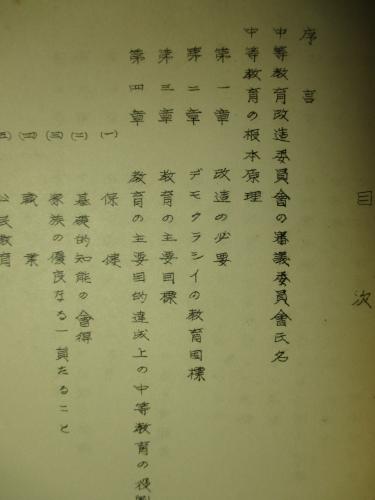 目次
序言
中等教育改造委員會の審議委員會氏名
中等教育の根本原理
第一章 改造の必要
第二章 デモクラシイの教育目標
第三章 教育の主要目標
第四章 教育の主要目的達成上の中等教育の役割
(一) 保健
(二) 基礎的知能の會得
(三) 家族の優良なる一員たること
(四) 職業
(五) 公民教育